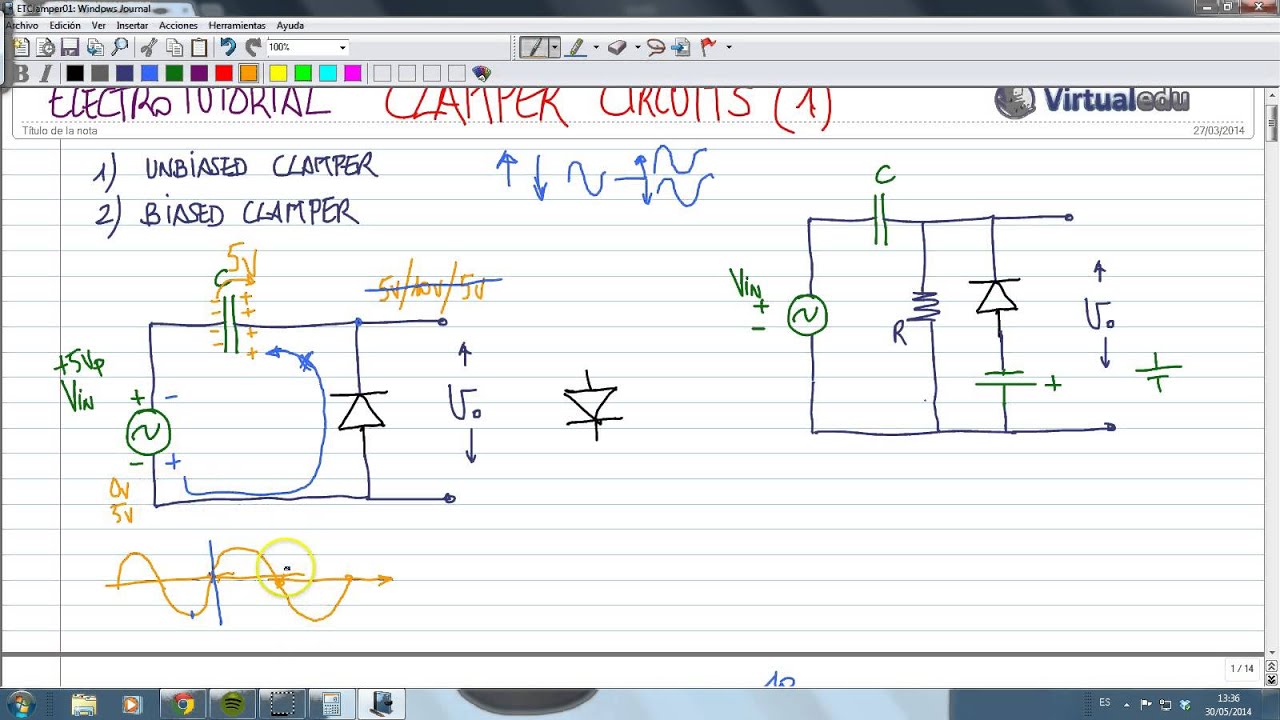 ETClamper01: Windows Journal
Archivo Edición Ver Insertar Acciones Herramientas Ayuda
100%
B I
ELECTROTUTORIAL CLAMPER CIRCUITS (1)
Virtualedu
Título de la nota
27/03/2014
1) UNBIASED CLAMPER
2) BIASED CLAMPER
C
5V
C
5V/10V/5V
Vin
+
-
R
Vo
+
+5Vp
Vin
+ -
- +
Vo
0V
5V
10
1 / 14
ES
13:36
30/05/2014